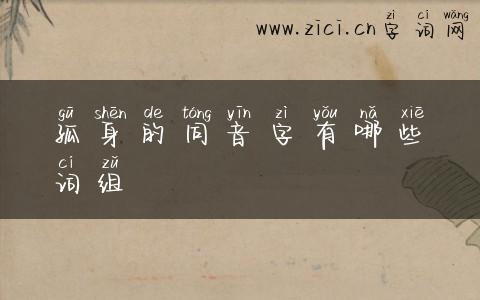 zì cí wǎng
www.zici.cn字词网
gū shēn de tóng yīn zì yǒu nǎ xiē
孤身的同音字有哪些
cí zǔ
词组